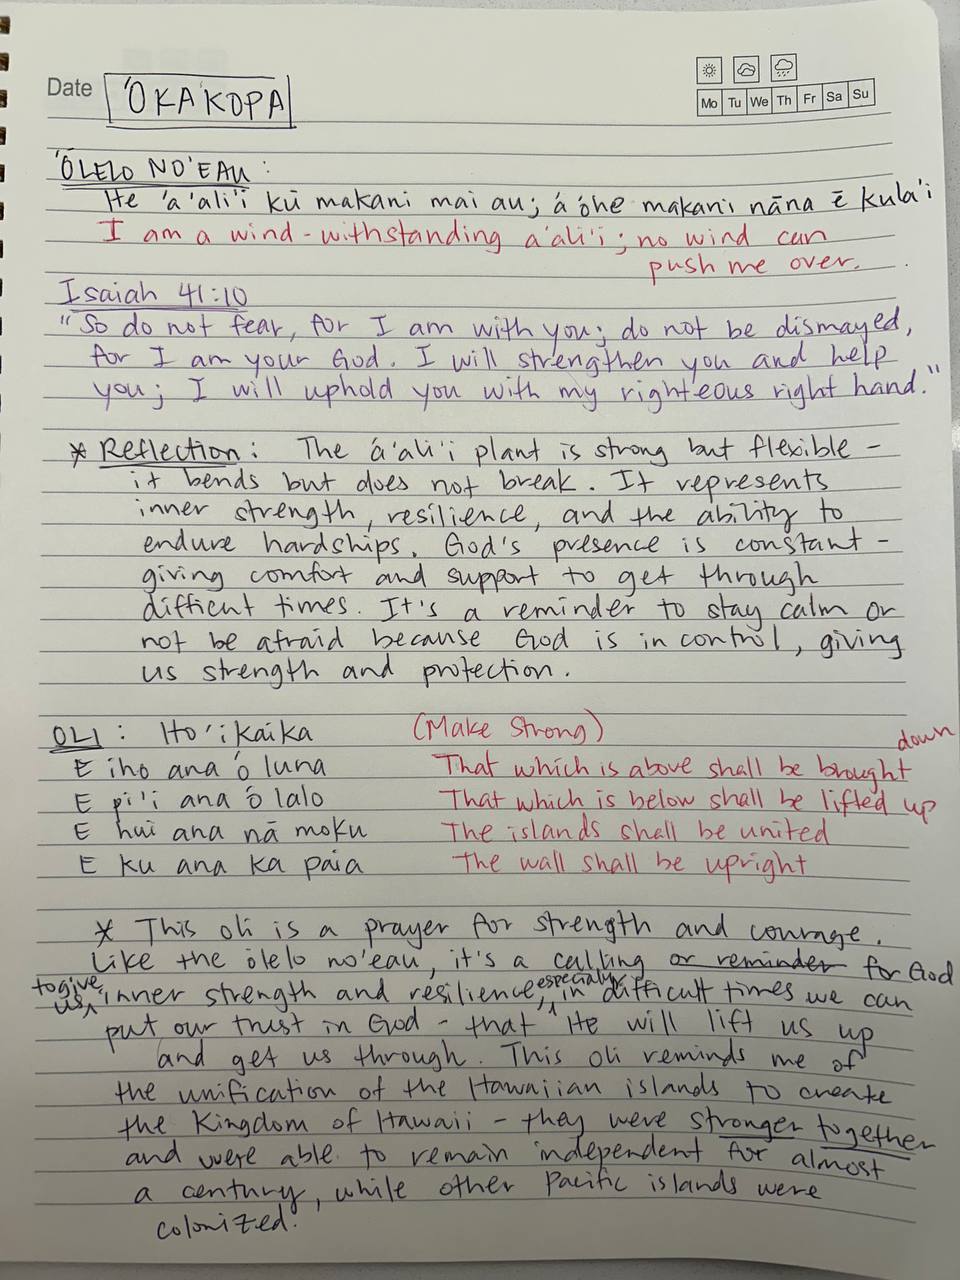 Date 'OKA'KOPA
Mo Tu We Th Fr Sa Su
'ŌLELO NO'EAU :
He 'a 'ali'i kū makani mai au; 'a'ohe makani nāna ē kula'i
I am a wind-withstanding a'ali'i; no wind can
push me over.
Isaiah 41:10
"So do not fear, for I am with you; do not be dismayed,
for I am your God. I will strengthen you and help
you; I will uphold you with my righteous right hand."
* Reflection: The a'ali'i plant is strong but flexible -
it bends but does not break. It represents
inner strength, resilience, and the ability to
endure hardships. God's presence is constant -
giving comfort and support to get through
difficent times. It's a reminder to stay calm or
not be afraid because God is in control, giving
us strength and protection.
OLI : Ho'ikaika (Make Strong)
E iho ana 'o luna That which is above shall be brought down
E pi'i ana 'o lalo That which is below shall be lifted up
E hui ana nā moku The islands shall be united
E ku ana ka paia The wall shall be upright
* This oli is a prayer for strength and courage.
Like the ōlelo no'eau, it's a calling or reminder for God
to give us inner strength and resilience, especially in difficult times we can
put our trust in God - that He will lift us up
and get us through. This oli reminds me of
the unification of the Hawaiian islands to create
the Kingdom of Hawaii - they were stronger together
and were able to remain independent for almost
a century, while other Pacific islands were
colonized.